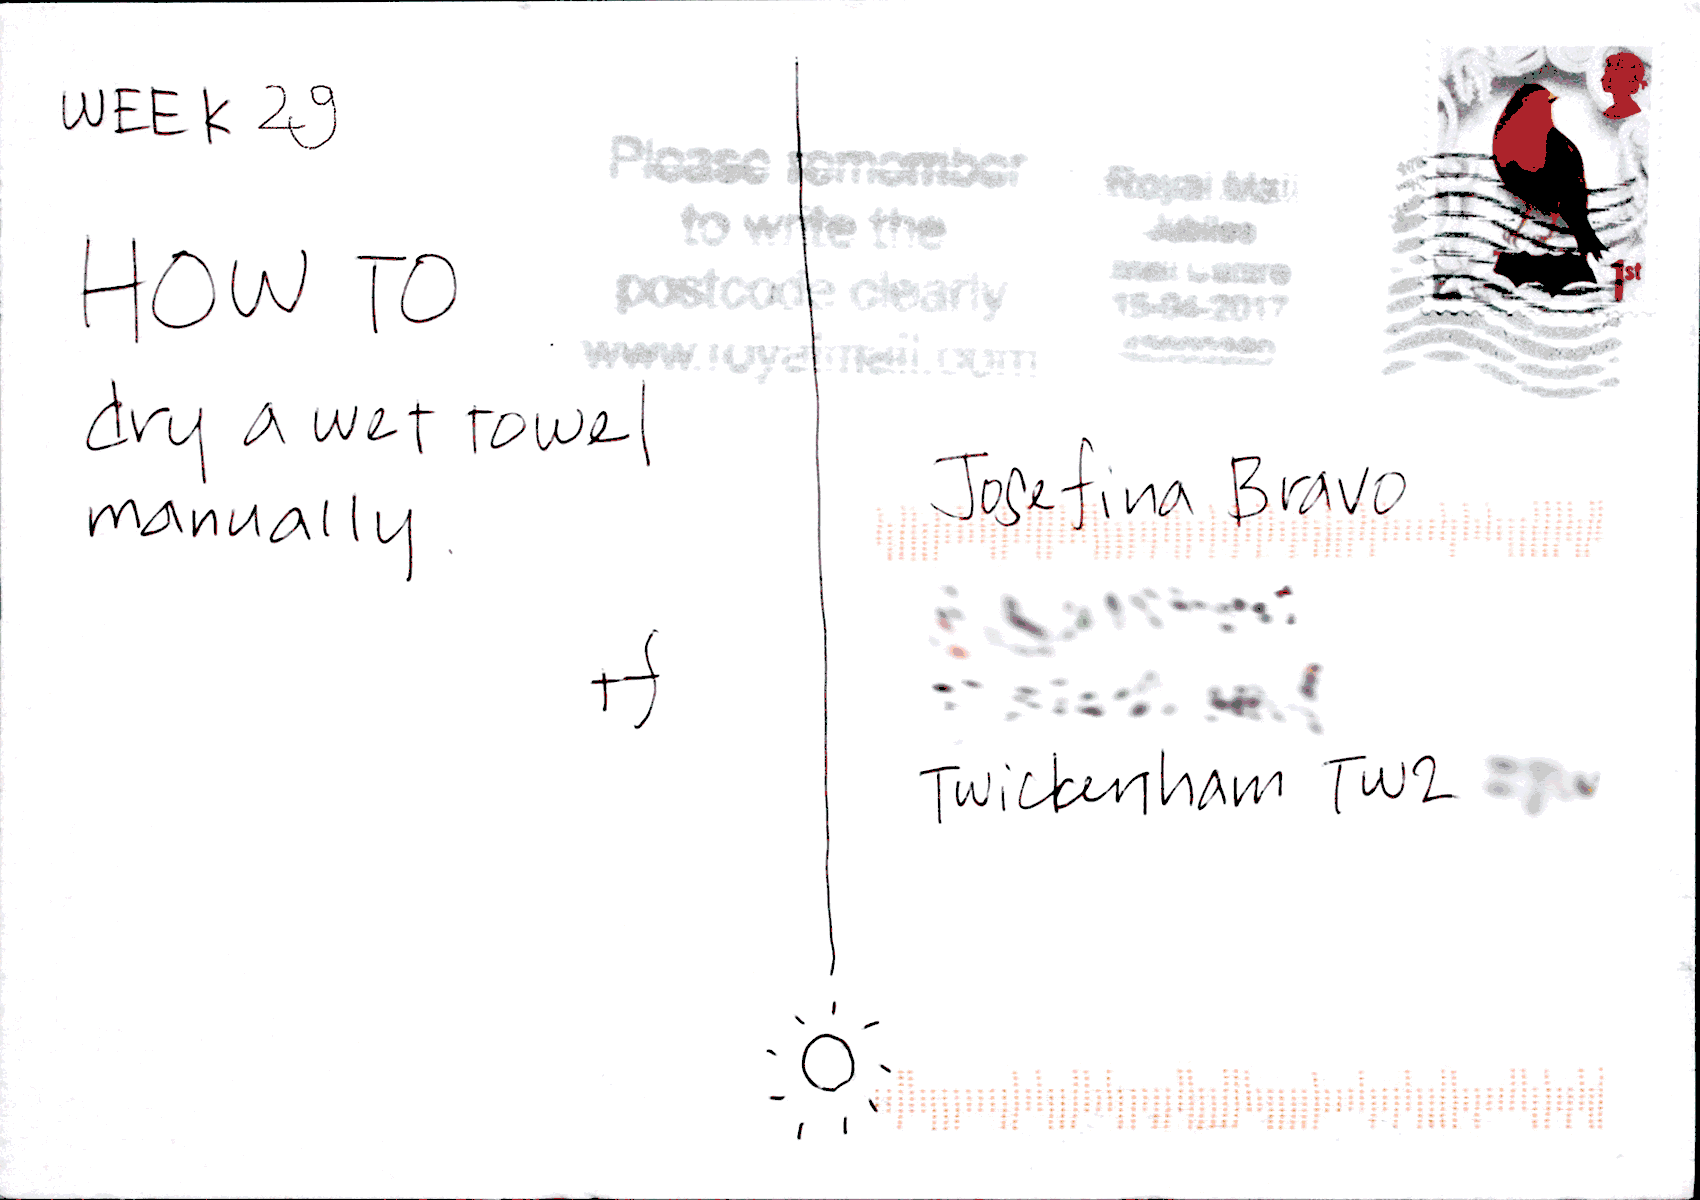 WEEK 29
HOW TO
dry a wet towel
manually.
tf
Please remember
to write the
postcode clearly
www.royalmail.com
Royal Mail
Jubilee
Mail Centre
15-04-2017
1st
Josefina Bravo
Twickenham TW2